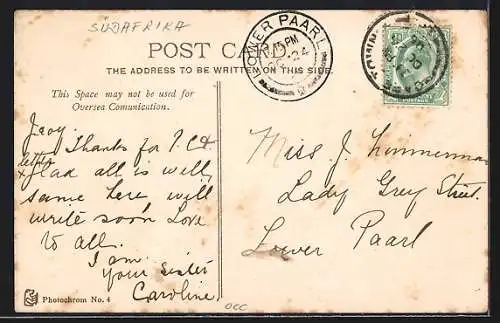 SÜDAFRIKA
POST CARD
THE ADDRESS TO BE WRITTEN ON THIS SIDE.
LOWER PAARL
PM
24
This Space may not be used for
Oversea Comunication.
Thanks for P.C &
letter
glad all is well,
same here will
write soon Love
to all.
I am
your sister
Caroline
Miss J. Zimmerman
Lady Grey Street.
Lower Paarl
Photochrom No. 4
occ